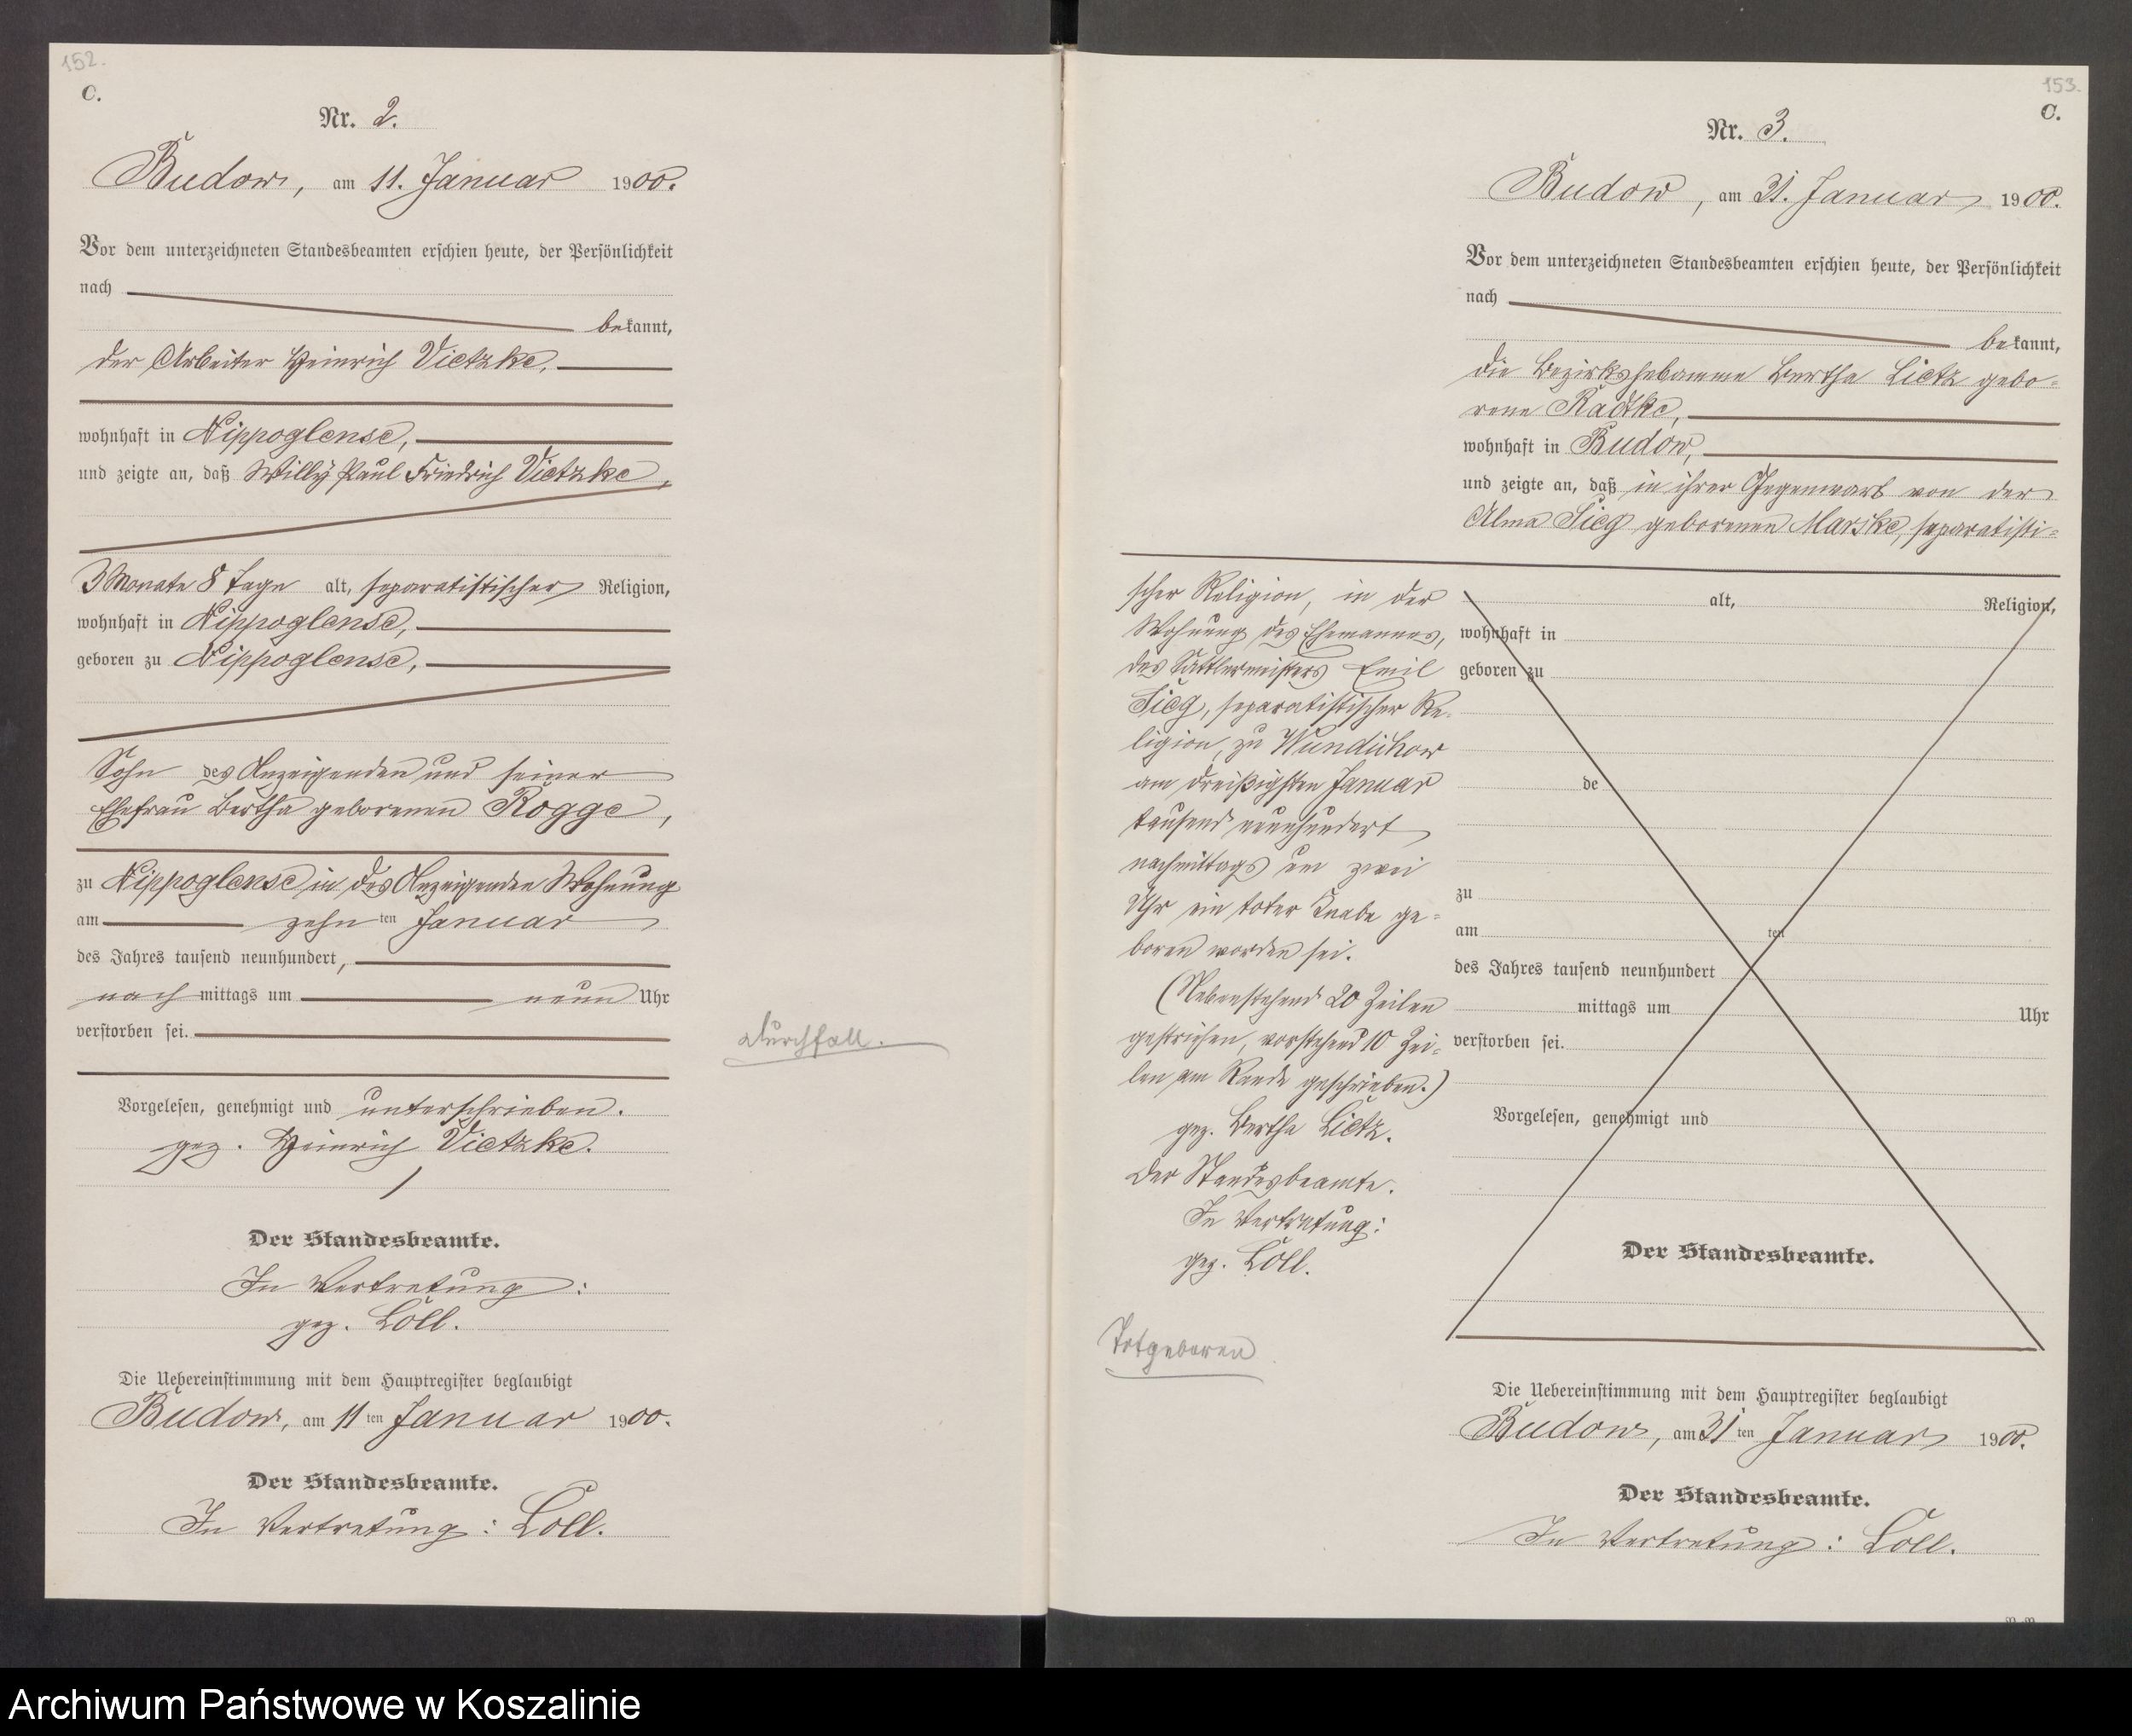 152.
C.
Nr. 2.
Budow, am 11. Januar 1900.
Vor dem unterzeichneten Standesbeamten erschien heute, der Persönlichkeit
nach
bekannt,
der Arbeiter Heinrich Vietzke,
wohnhaft in Nippoglense,
und zeigte an, daß Willy Paul Friedrich Vietzke,
3 Monate 8 Tage alt, separatistischer Religion,
wohnhaft in Nippoglense,
geboren zu Nippoglense,
Sohn des Anzeigenden und seiner
Ehefrau Bertha geborenen Rogge,
zu Nippoglense in des Anzeigenden Wohnung
am zehn ten Januar
des Jahres tausend neunhundert,
nach mittags um neun Uhr
verstorben sei.
Durchfall.
Vorgelesen, genehmigt und unterschrieben.
gez. Heinrich Vietzke.
Der Standesbeamte.
In Vertretung:
gez. Löll.
Die Uebereinstimmung mit dem Hauptregister beglaubigt
Budow, am 11 ten Januar 1900.
Der Standesbeamte.
In Vertretung: Löll.
153.
C.
Nr. 3.
Budow, am 31. Januar 1900.
Vor dem unterzeichneten Standesbeamten erschien heute, der Persönlichkeit
nach
bekannt,
die Bezirkshebamme Bertha Lietz gebo-
rene Radtke,
wohnhaft in Budow,
und zeigte an, daß in ihrer Gegenwart von der
Alma Sieg geborenen Marske, separatisti-
scher Religion, in der
Wohnung des Ehemannes,
des Sattlermeisters Emil
Sieg, separatistischer Re-
ligion, zu Wundichow
am dreißigsten Januar
tausend neunhundert
nachmittags um zwei
Uhr ein toter Knabe ge-
boren worden sei.
(Nebenstehend 20 Zeilen
gestrichen, vorstehend 10 Zei-
len am Rande geschrieben.)
gez. Bertha Lietz.
Der Standesbeamte.
In Vertretung:
gez. Löll.
Totgeboren
alt, Religion,
wohnhaft in
geboren zu
de
zu
am ten
des Jahres tausend neunhundert
mittags um Uhr
verstorben sei.
Vorgelesen, genehmigt und
Der Standesbeamte.
Die Uebereinstimmung mit dem Hauptregister beglaubigt
Budow, am 31 ten Januar 1900.
Der Standesbeamte.
In Vertretung: Löll.
Archiwum Państwowe w Koszalinie